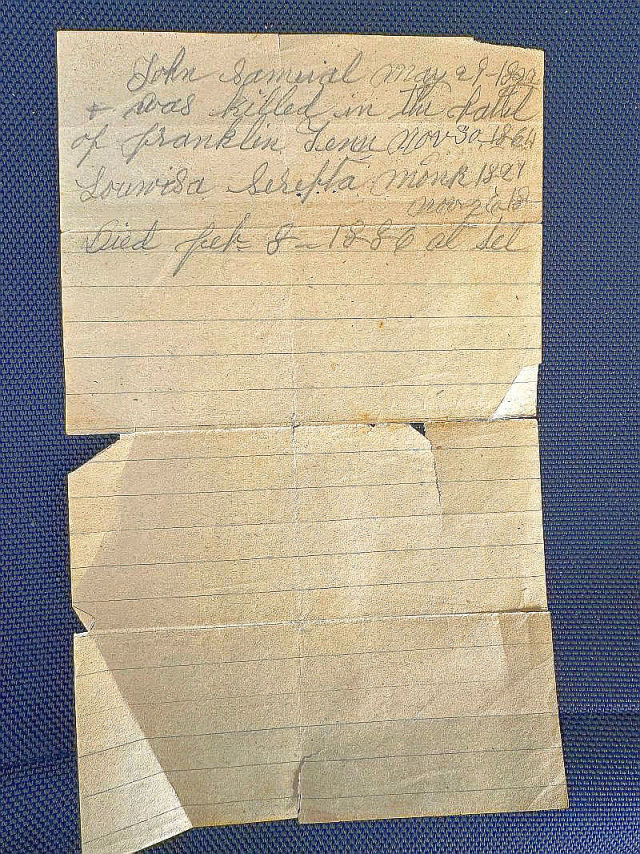 John Samuial may 29-18
+ was killed in the battel
of franklin Tenn Nov 30-1864
Louwisa Serepta monk 1827
Nov 26 18
Died feb 8-1886 at Sel